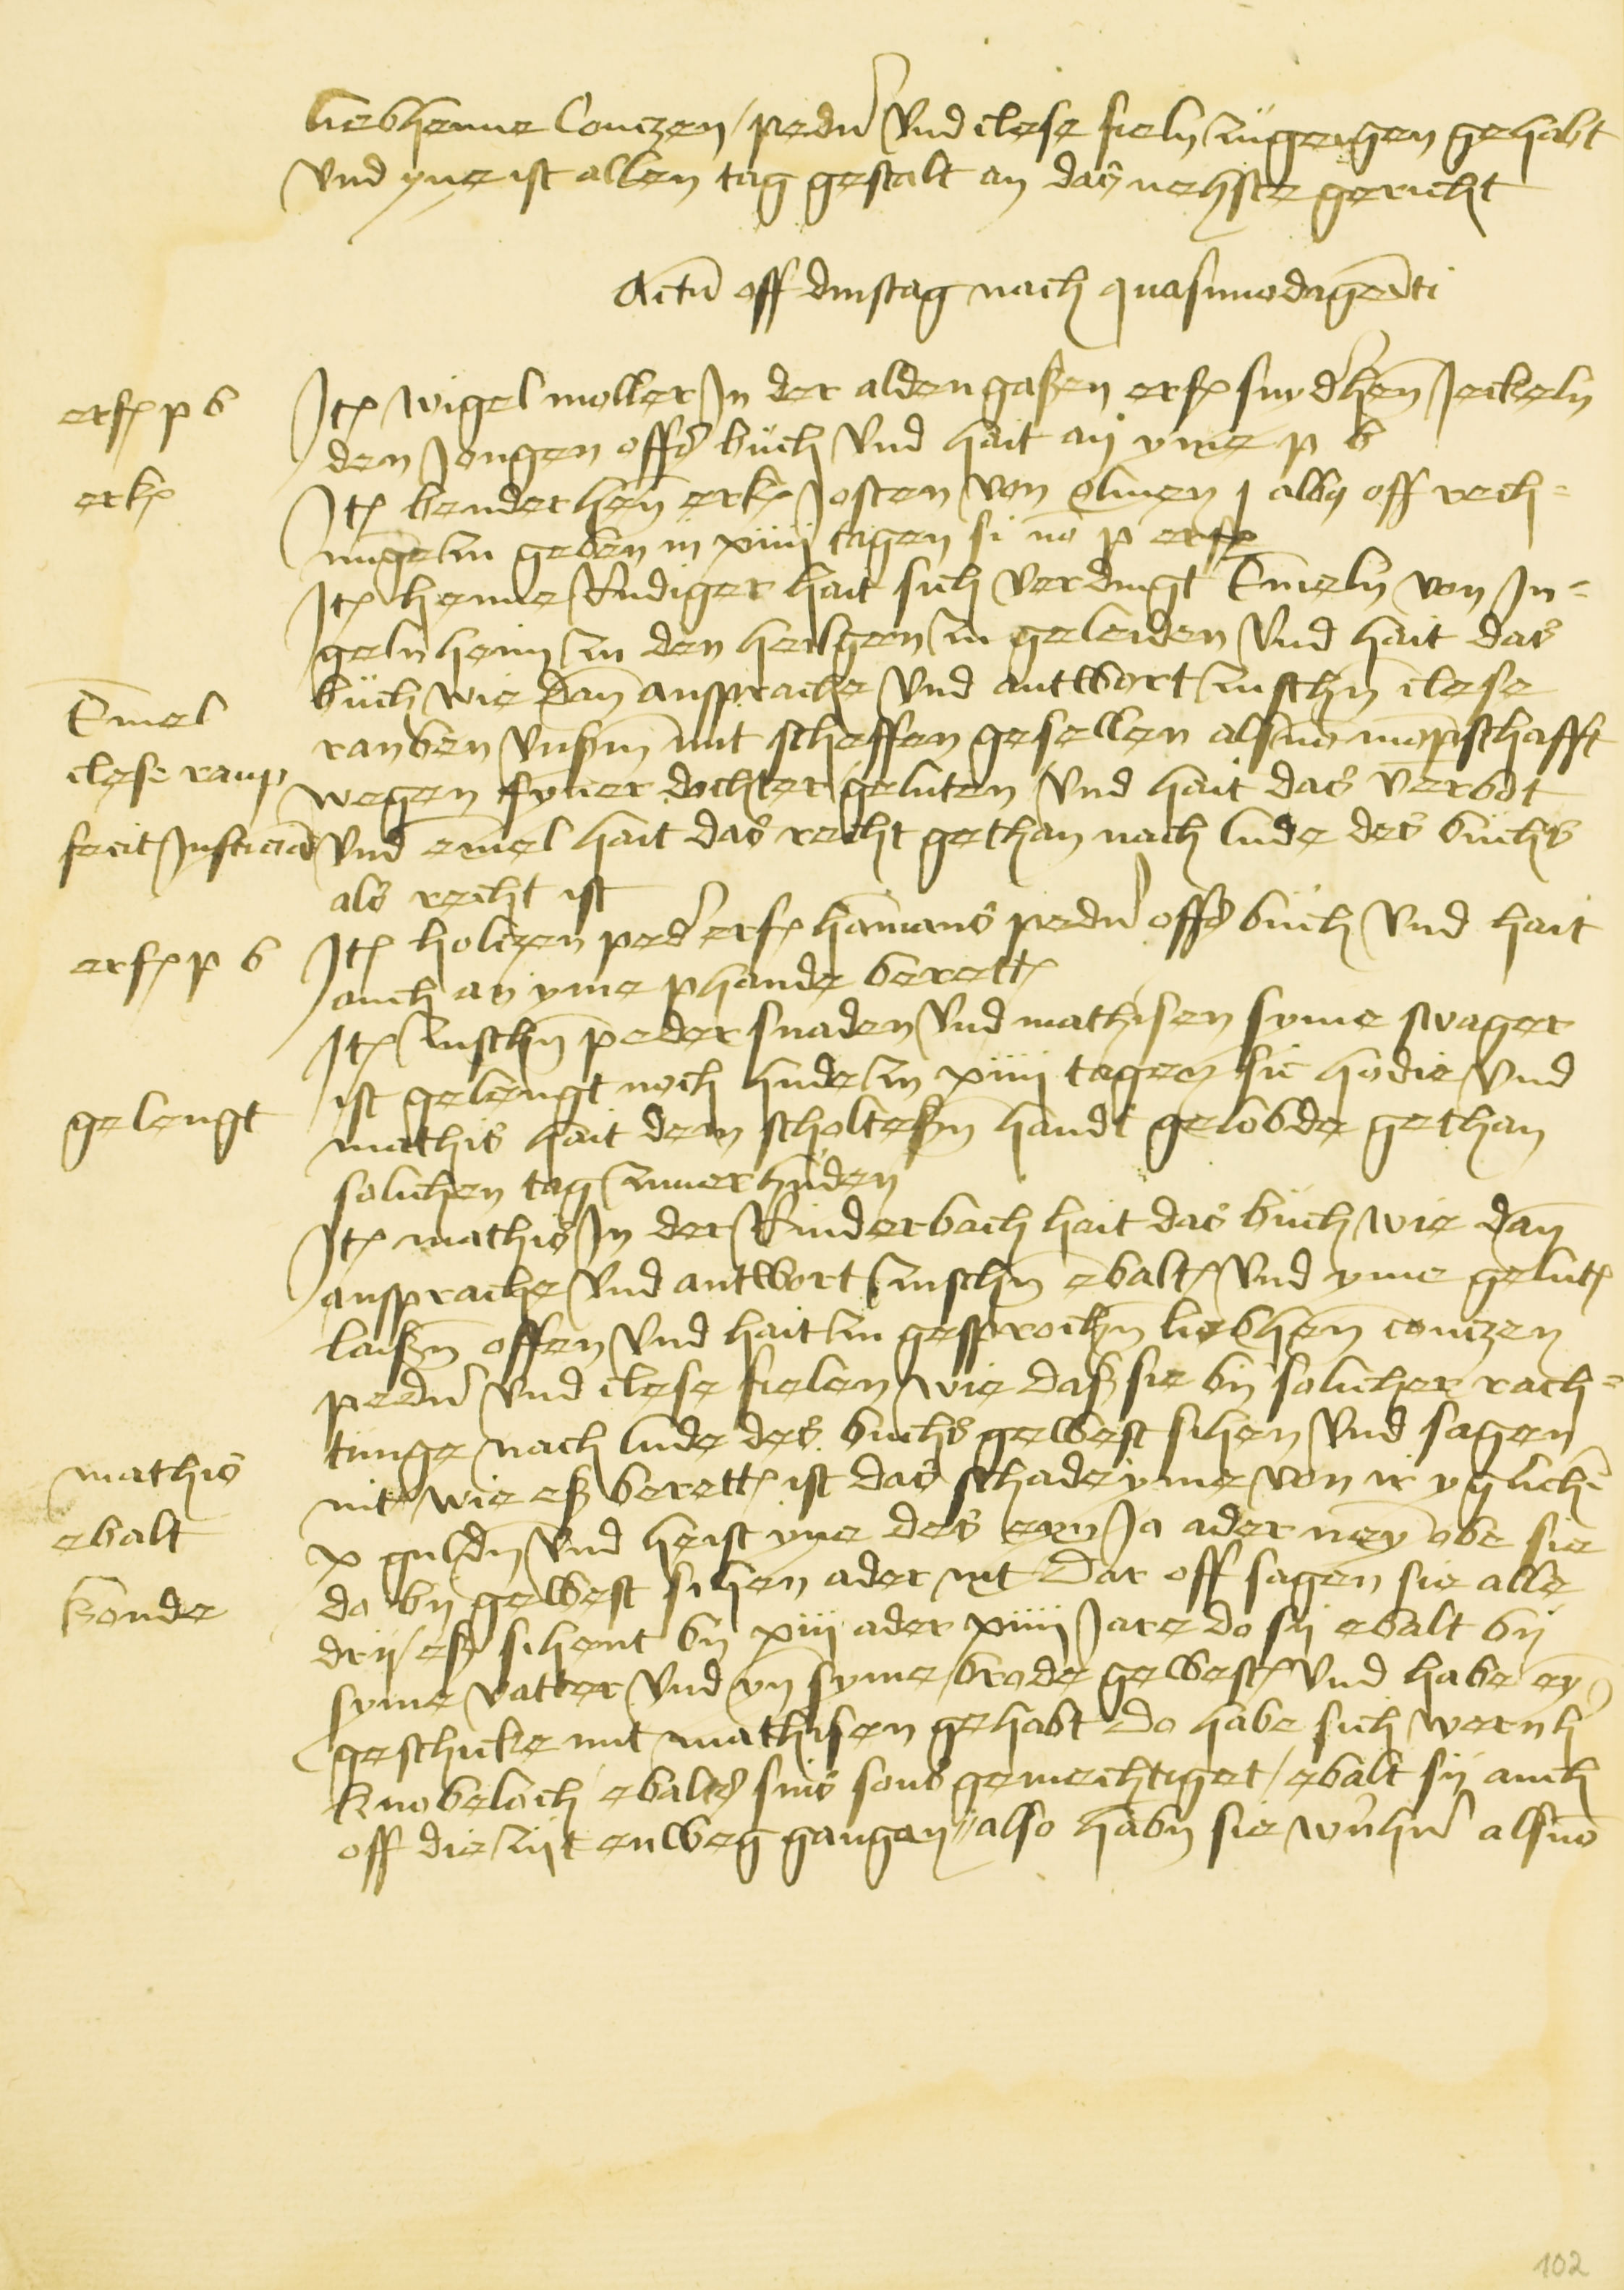 liebhenne Conczen / peder vnd clese fieln zugeigen gehabt
vnd yne ist allen tag gestalt an das nehste gericht
Actu off dinstag nach quasimodogeniti
erf p b
Jt wigel moller Jn der aldengaßen erf snyderhen Jeckeln
den Jongen offs buch vnd hait an yme p b
erk
Jt bender hen erk Josten von olmen j alb off rech-
nu͞ge zu geben in xiiii tagen si no p erf
Jt henne Rudiger hait sich verdingt Emeln von Jn-
gelnheim zu den heilgen zu geleiden vnd hait das
Emel
buch wie dan ansprache vnd antwort zuschn clese
clese raup
rauben vnßm mit scheffen gesellen als mompschafft
wegen syner dochter geluten vnd hait das verbot
fecit Justicia
vnd emel hait das recht gethan nach lude des buchs
als recht ist
erf p b
Jt holczen peder erf hamans peder offs buch vnd hait
auch an yme phande berett
Jt zuschn peder snaden vnd mathisen syme swager
gelengt
ist gelengt noch hude zu xiiii tagen sic hodie vnd
mathis hait dem scholteßn handt gelobde gethan
solichen tag zuuerhuden
Jt mathis Jn der Rinderbach hait das buch wie dan
ansprache vnd antwort zuschn ebalt vnd yme gelut
laißn offen vnd hait zu gesprochn liebhen conczen
peder vnd clese fielen wie daß sie by solicher rach-
tunge nach lude des buchs gewest sihen vnd sagen
mathis
nit wie eß berett ist das schade yme von ir yglich
ebalt
x guldn vnd heist yne des eyn Ja ader ney obe sie
konde
do by gewest sihen ader nit Dar off sagen sie alle
drij / eß sihent by xiii ader xiiii Jare do sy ebalt by
syme vatter vnd yn syme brode gewest vnd habe ey
geschicke mit mathisen gehabt do habe sich wernh
knobeloch ebalts sins sons gemechtiget / ebalt sy auch
off die zijt enweg gangen // also habn sie wernher als
102